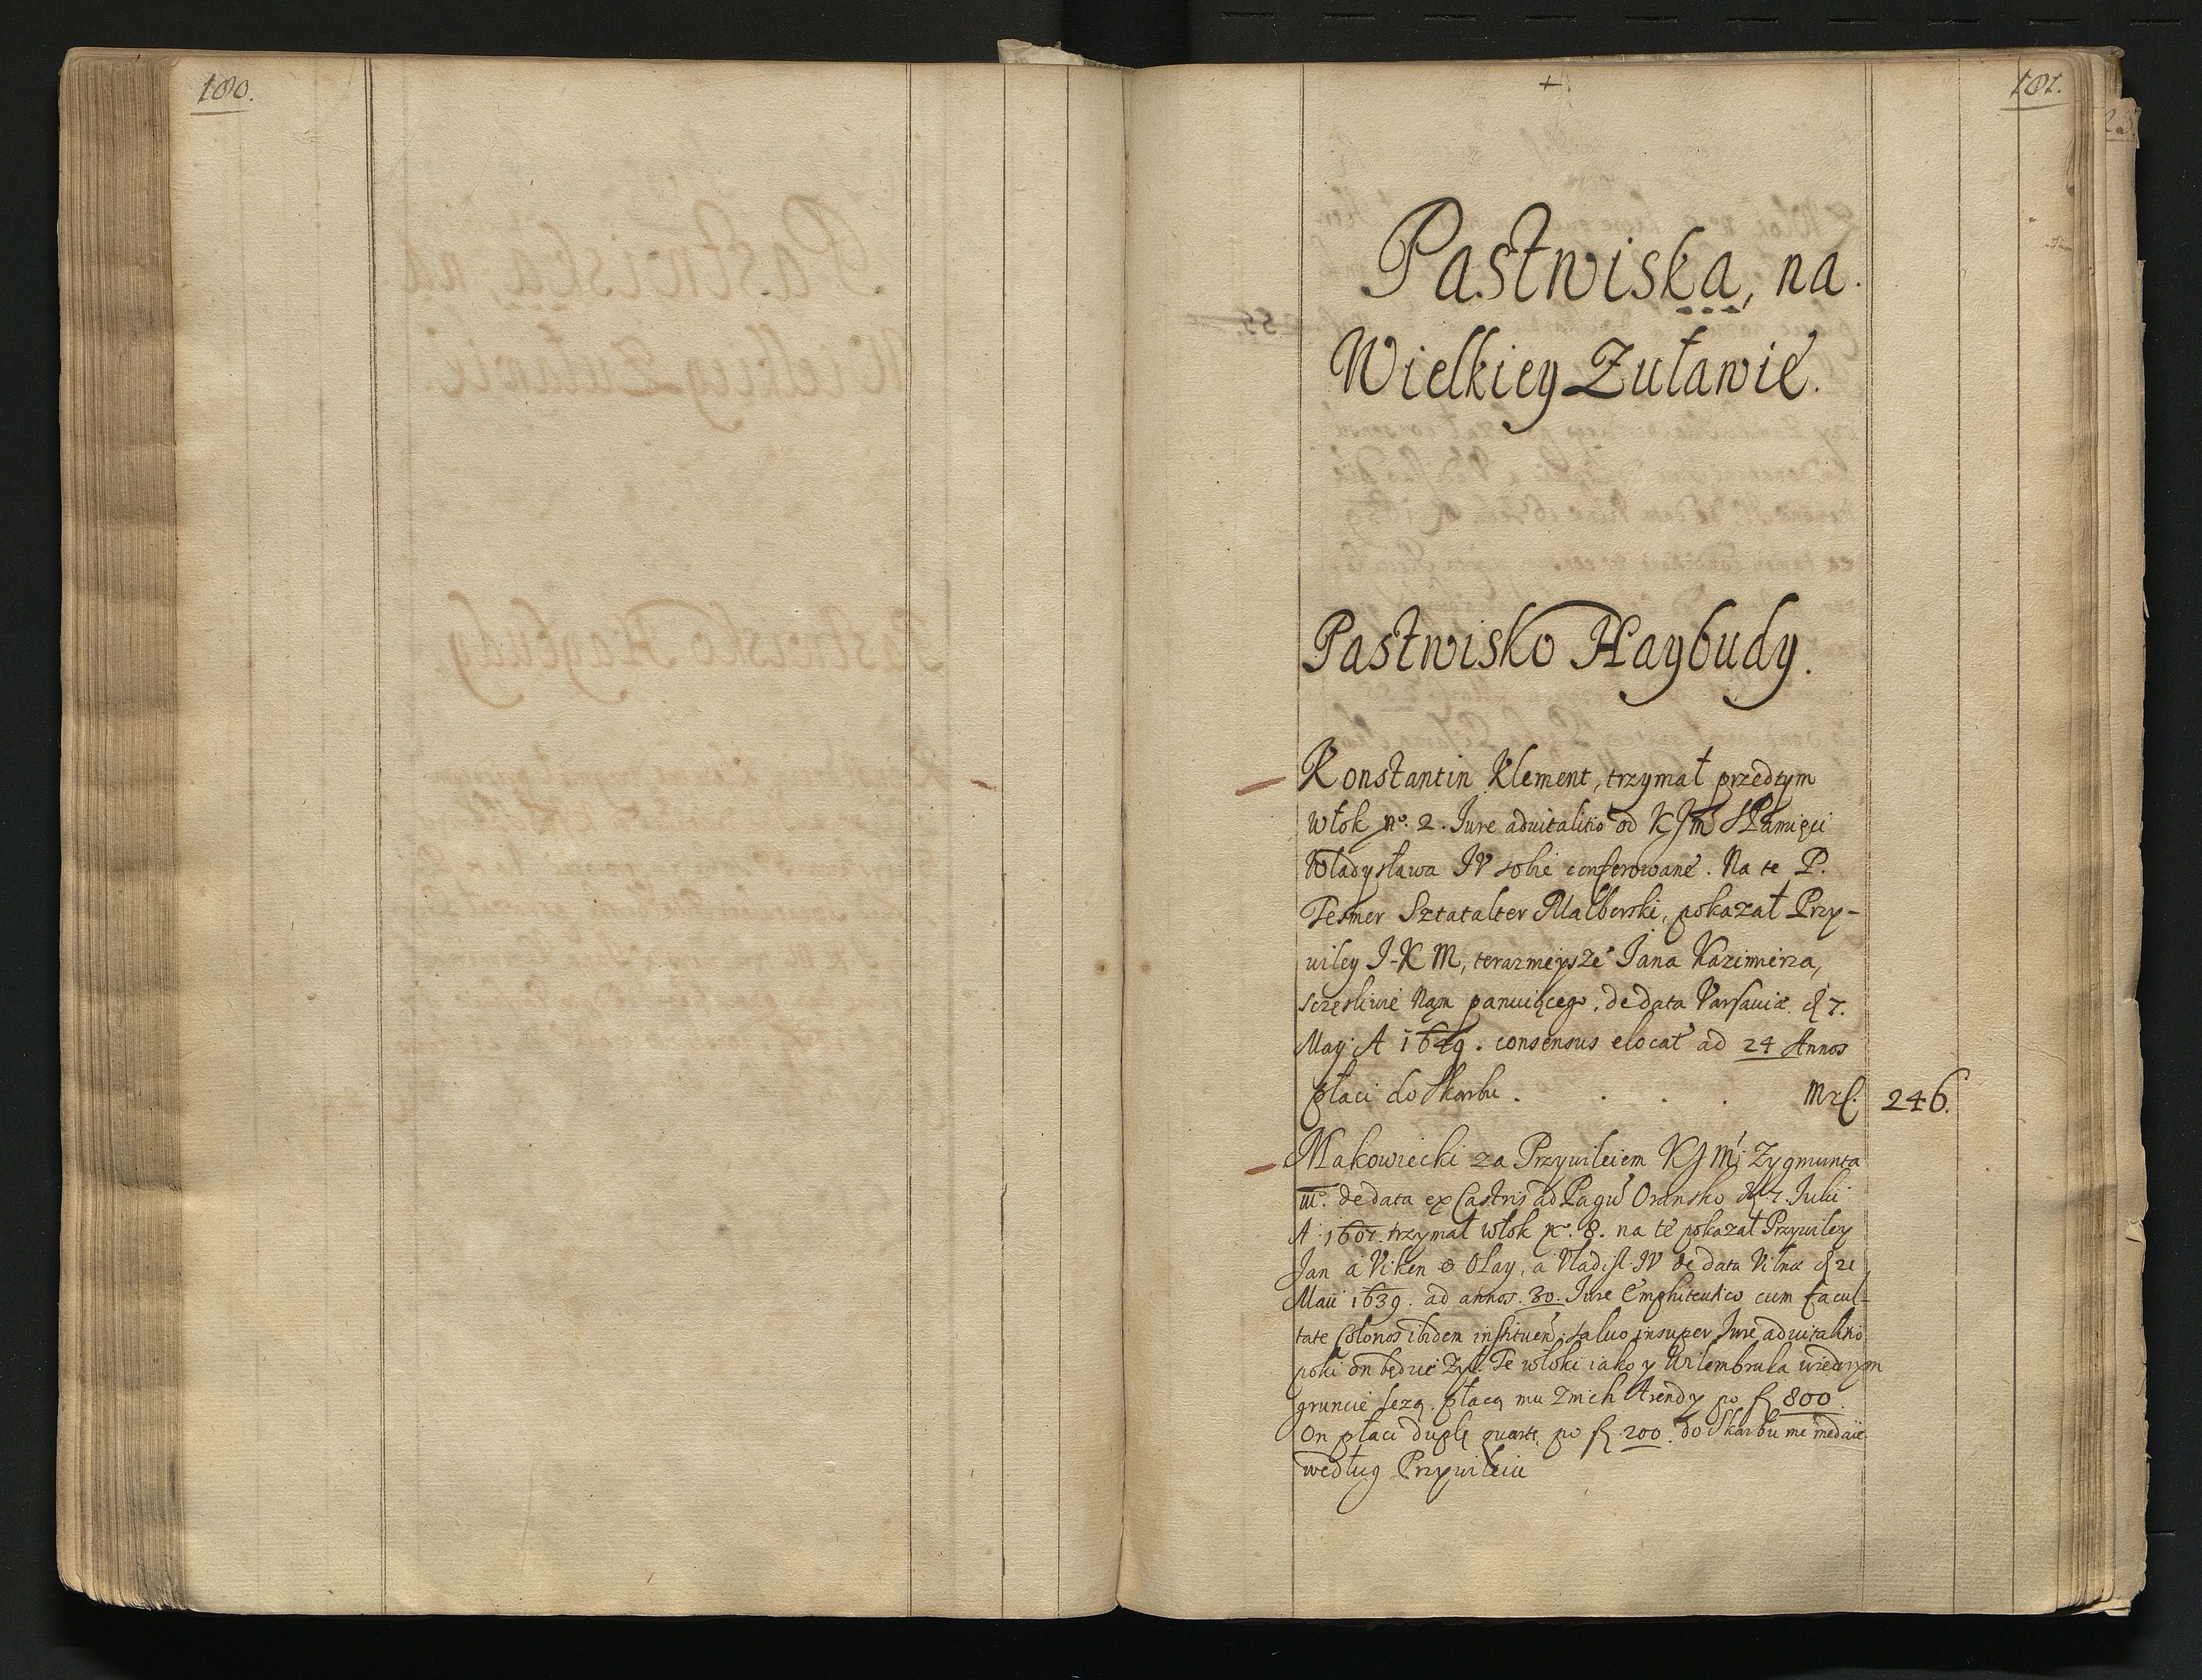 180.
181.
Pastwiska, na
Wielkiey Zuławie.
Pastwisko Haybudy.
Konstantin Klement, trzymał przedtym
włok no. 2. Iure aduitalitio od KJM S Pamięci
Władysława IV sobie conferowane. Na te P.
Tesmer Sztatalter Malborski, pokazał Przy-
uiley J K M, teraznieysze Jana Kazimierza,
sczęśliwie Nąm panuiącego, de data Varsauiæ d 7.
May A 1649. consensus elocat ad 24 Annos
płaci do Skarbu . . . . Mrl. 246.
Makowiecki za Przyuileiem KJM Zygmunta
III. de data ex Castris ad Pagu Oransko d 7. Iulii
A 1607. trzymał włok no. 8. na te pokazał Przyuiley
Jan a Viken Olay, a Vladisl. IV de data Vilnæ d 21
Maii 1639. ad annos. 30. Iure Emphiteutico cum facul-
tate Colonos ibidem instituen. saluo insuper Iure aduitalitio
poki on będzie Zył. Te włoki iako y Wilembruka wiednym
gruncie lezą. płacą mu Znich Arendy po fl 800.
On płaci duplę quartę po fl. 200. do Skarbu nie niedaie
według Przyuileiu